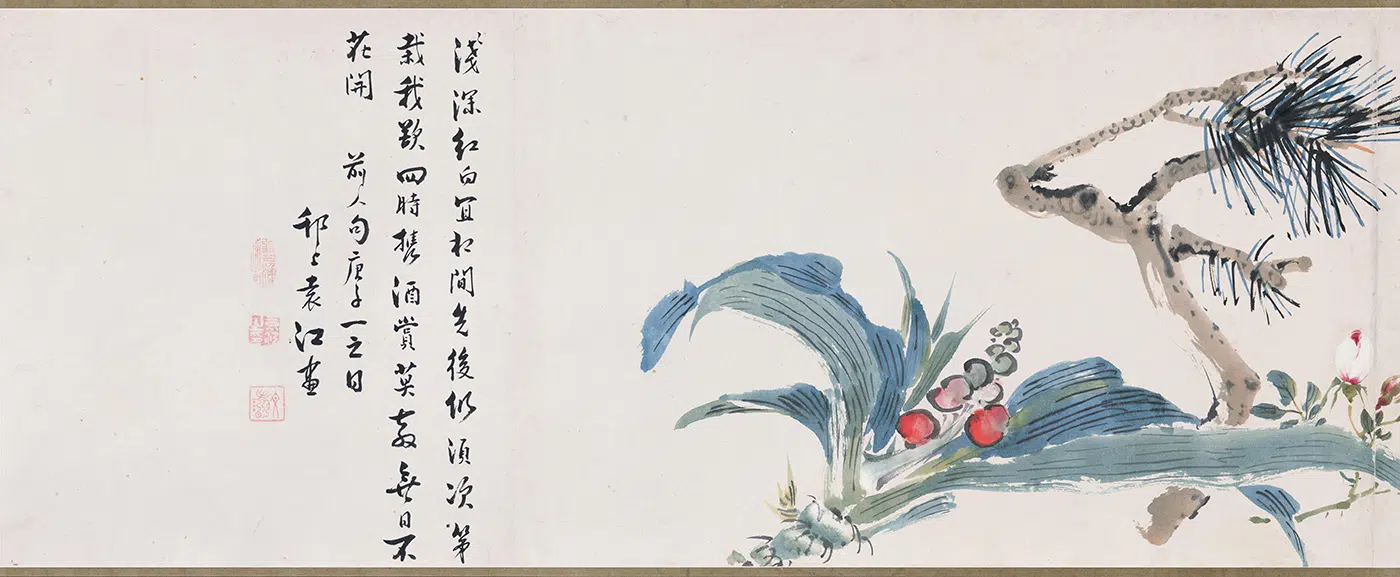 淺深紅白宜相間先後仍須次第
栽我欲四時攜酒賞莫教無日不
花開 前人句庚子一之日
邗上袁江畫